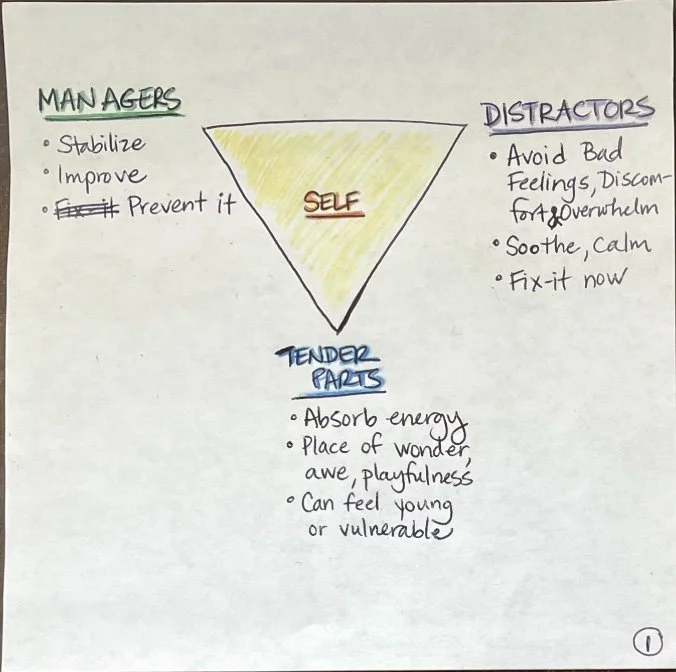 MANAGERS
• Stabilize
• Improve
• Fix-it Prevent it
SELF
DISTRACTORS
• Avoid Bad
Feelings, Discom-
fort & Overwhelm
• Soothe, Calm
• Fix-it now
TENDER
PARTS
• Absorb energy
• Place of wonder,
awe, playfulness
• Can feel young
or vulnerable
1